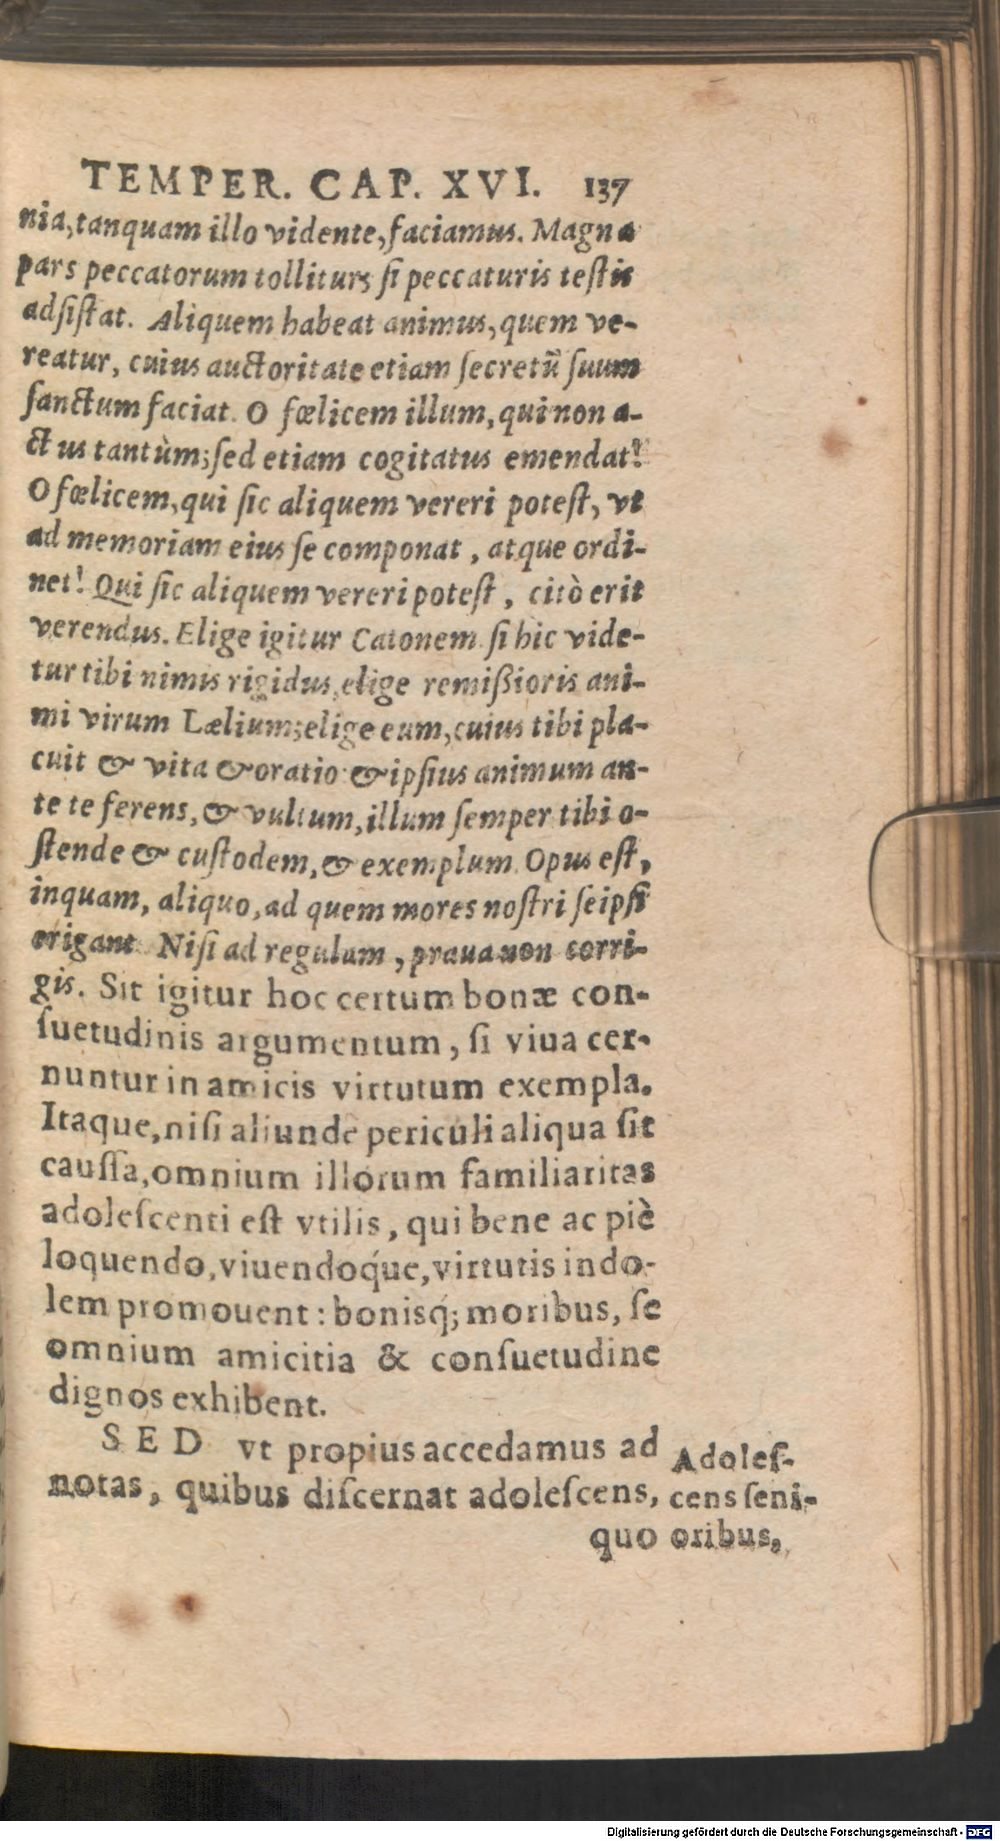 TEMPER. CAP. XVI. 137
nia, tanquam illo vidente, faciamus. Magna
pars peccatorum tollitur, si peccaturis testis
adsistat. Aliquem habeat animus, quem ve-
reatur, cuius auctoritate etiam secretū suum
sanctum faciat. O fœlicem illum, qui non a-
ctus tantùm; sed etiam cogitatus emendat!
O fœlicem, qui sic aliquem vereri potest, vt
ad memoriam eius se componat, atque ordi-
net! Qui sic aliquem vereri potest, citò erit
verendus. Elige igitur Catonem. si hic vide-
tur tibi nimis rigidus, elige remißioris ani-
mi virum Lælium; elige eum, cuius tibi pla-
cuit & vita & oratio: & ipsius animum an-
te te ferens, & vultum, illum semper tibi o-
stende & custodem, & exemplum. Opus est,
inquam, aliquo, ad quem mores nostri seipsi
erigant. Nisi ad regulam, praua non corri-
gis. Sit igitur hoc certum bonæ con-
suetudinis argumentum, si viua cer-
nuntur in amicis virtutum exempla.
Itaque, nisi aliunde periculi aliqua sit
caussa, omnium illorum familiaritas
adolescenti est vtilis, qui bene ac piè
loquendo, viuendoq́ue, virtutis indo-
lem promouent: bonisq́; moribus, se
omnium amicitia & consuetudine
dignos exhibent.
SED vt propius accedamus ad
notas, quibus discernat adolescens,
quo
Adoles-
cens seni-
oribus,
Digitalisierung gefördert durch die Deutsche Forschungsgemeinschaft - DFG